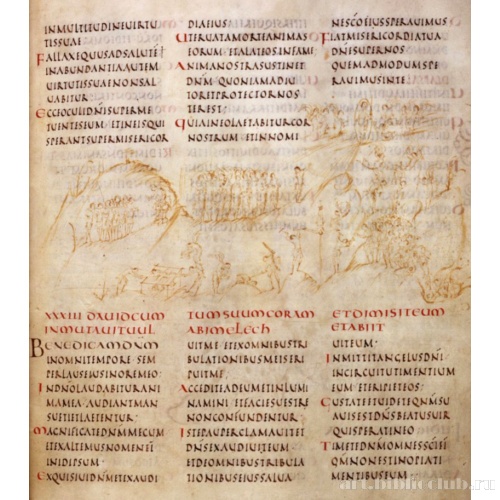 INMULTITUDINEUIRTU
TISSUAE
FALLAXEQUUSADSALUTĒ
INABUNDANTIAAUTEM
UIRTUTISSUAENONSAL
UABITUR
ECCEOCULIDN̄ISUPERME
TUENTISEUM ETINEISQUI
SPERANTSUPERMISERICOR
DIAEIUS
UTERUATAMORTEANIMAS
EORUM·ETALATEOSINFAM̄
ANIMANOSTRASUSTINET
DN̄M QUONIAMADIU
TORETPROTECTORNOS
TEREST
QUIAINEOLAETABITURCOR
NOSTRUM ETINNOMI
NESCŌEIUSSPERAUIMUS
FIATMISERICORDIATUA
DN̄ESUPERNOS
QUEMADMODUMSPE
RAUIMUSINTE
XXXIII DAUIDCUM
INMUTAUITUUL
TUMSUUMCORAM
ABIMELECH
ETDIMISITEUM
ETABIIT
BENEDICAMDN̄M
INOMNITEMPORE SEM
PERLAUSEIUSINOREMEO
INDN̄OLAUDABITURANI
MAMEA AUDIANTMAN
SUETIETLAETENTUR
MAGNIFICATEDN̄MMECUM
ETEXALTEMUSNOMENEI
INIDIPSUM
EXQUISIUIDN̄METEXAUDI
UITME ETEXOMNIBUSTRI
BULATIONIBUSMEISERI
PUITME
ACCEDITEADEUMETINLUMI
NAMINI ETFACIESUESTRE
NONCONFUNDENTUR
ISTEPAUPERCLAMAUITET
DN̄SEXAUDIUITEUM
ETDEOMNIBUSTRIBULA
TIONIBUSEIUSSALUA
UITEUM
INMITTITANGELUSDN̄I
INCIRCUITUTIMENTIUM
EUM ETERIPIETEOS
GUSTATEETUIDETEQN̄MSU
AUISESTDN̄SBEATUSUIR
QUISPERATINEO
TIMETEDN̄MOMNESSC̄IEI
QM̄NONESTINOPIATI
MENTIBUSEUM